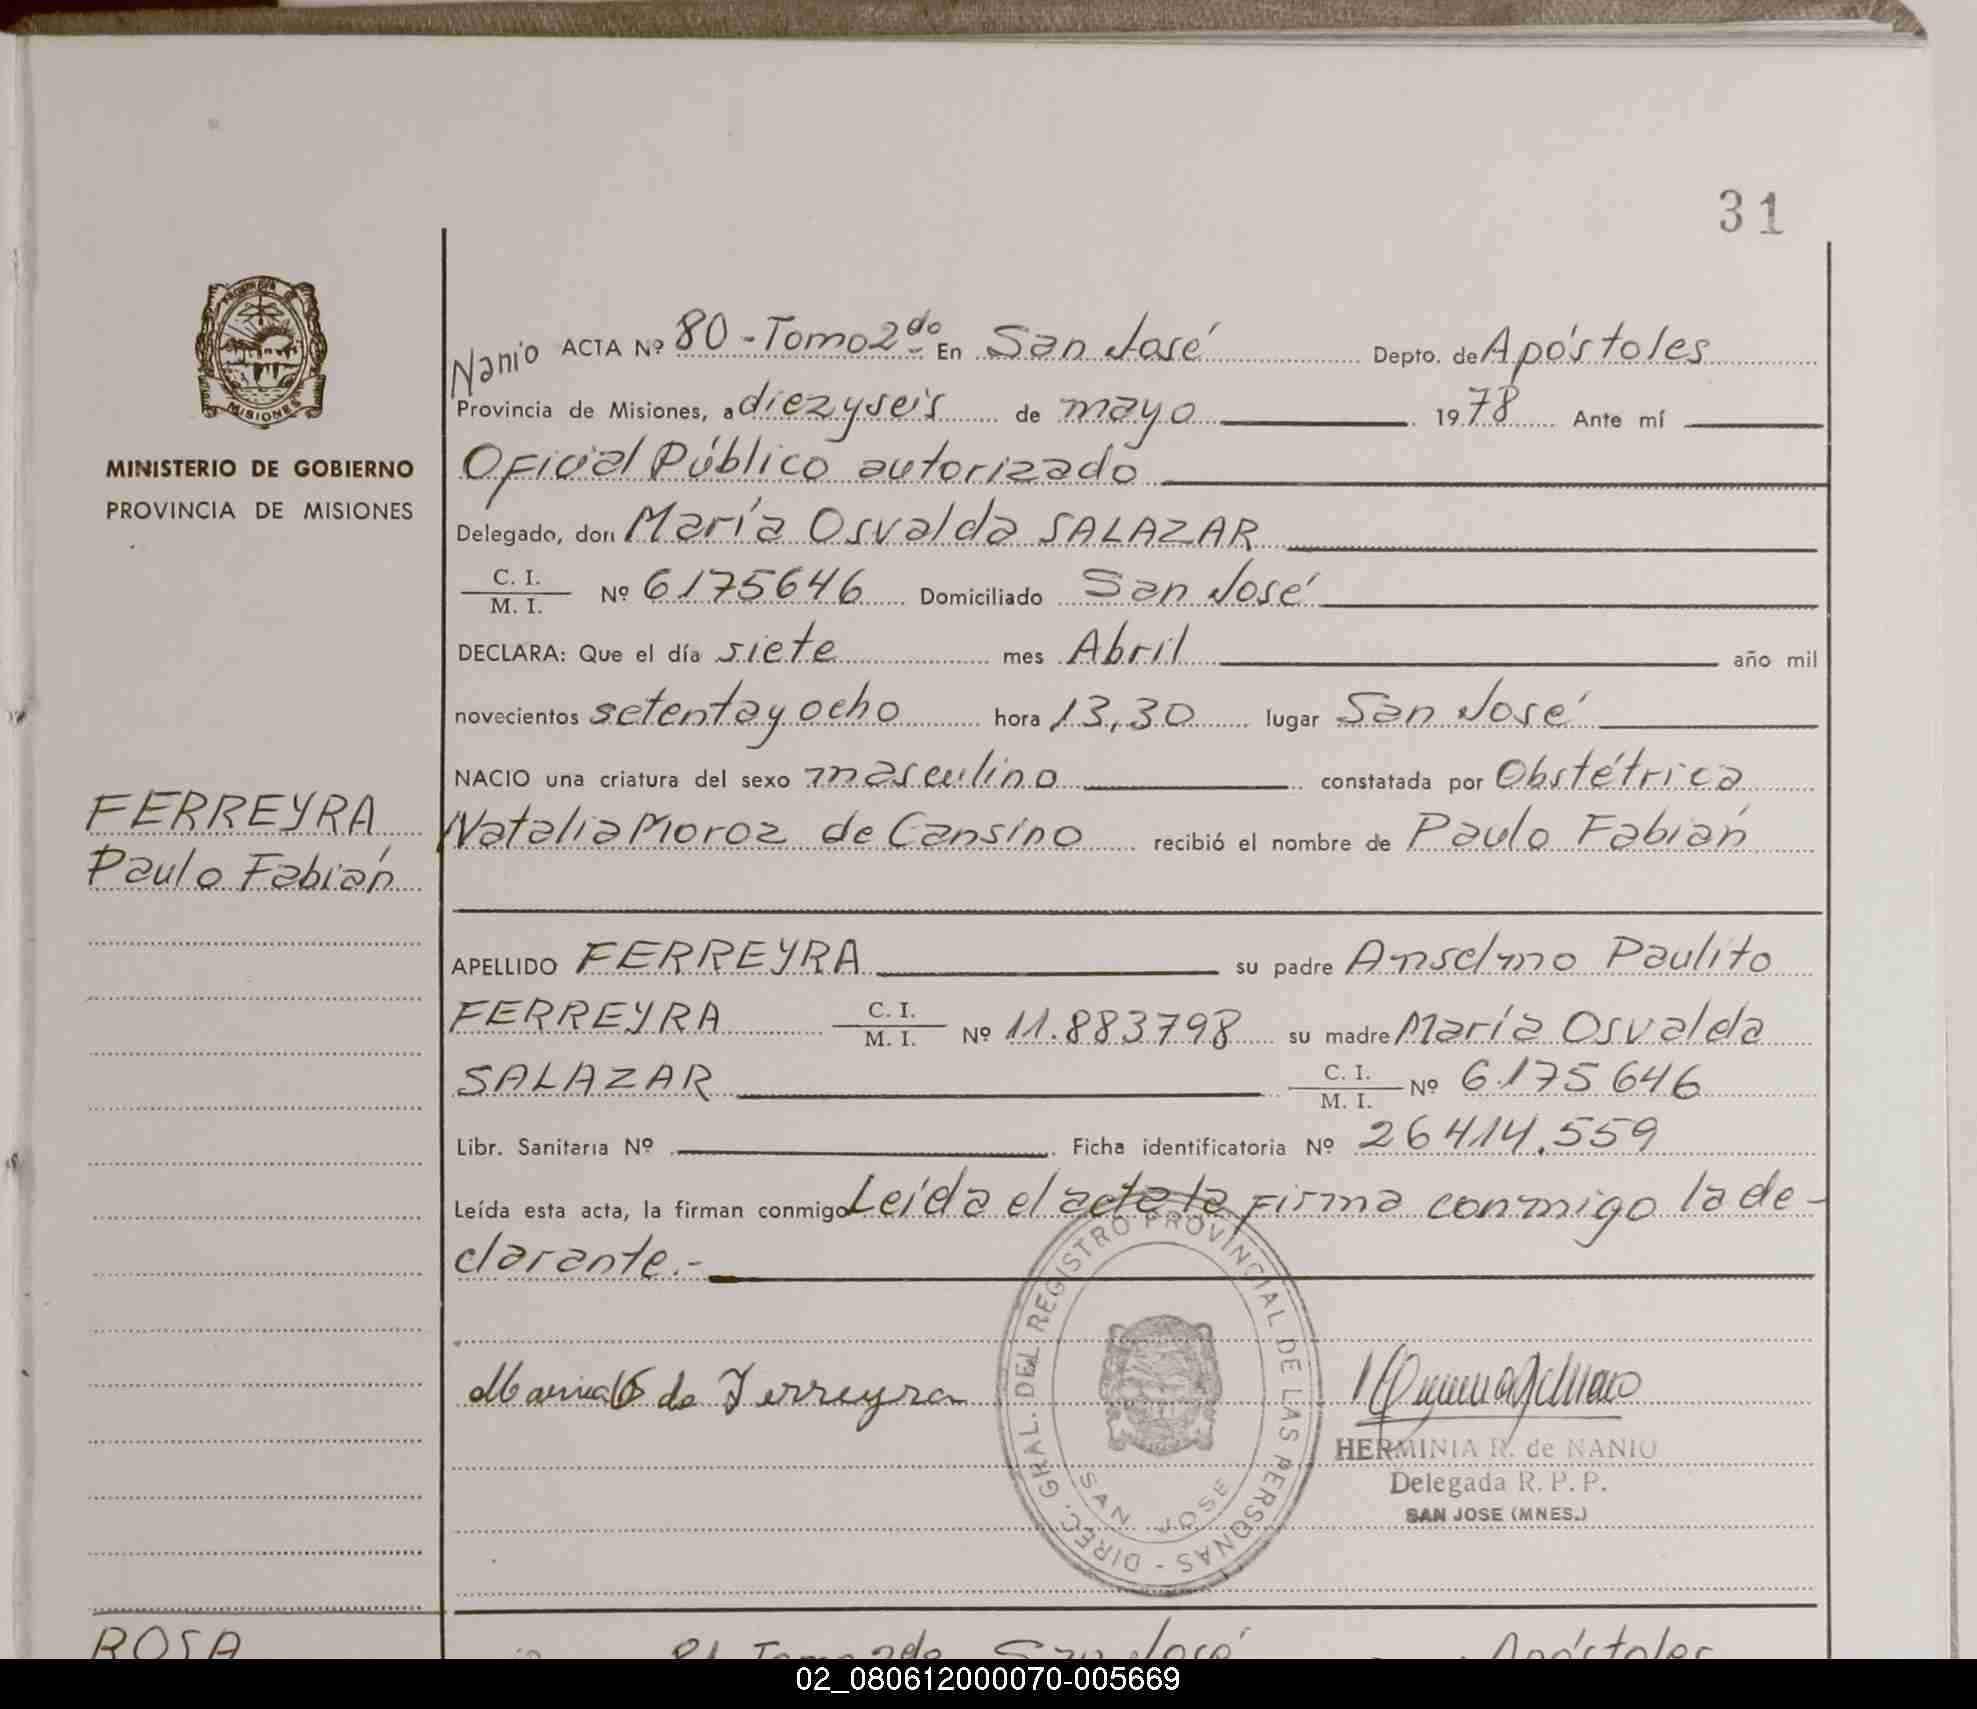 31
MISIONES
MINISTERIO DE GOBIERNO
PROVINCIA DE MISIONES
FERREYRA
Paulo Fabián
Nanio ACTA Nº 80 - Tomo 2do En San José Depto. de Apóstoles
Provincia de Misiones, a diezyseis de mayo 1978 Ante mí
Oficial Público autorizado
Delegado, don María Osvalda SALAZAR
C. I. / M. I. Nº 6175646 Domiciliado San José
DECLARA: Que el día siete mes Abril año mil
novecientos setentayocho hora 13,30 lugar San José
NACIO una criatura del sexo masculino constatada por Obstétrica
Natalia Moroz de Cansino recibió el nombre de Paulo Fabián
APELLIDO FERREYRA su padre Anselmo Paulito
FERREYRA C. I. / M. I. Nº 11.883798 su madre María Osvalda
SALAZAR C. I. / M. I. Nº 6.175646
Libr. Sanitaria Nº Ficha identificatoria Nº 26414.559
Leída esta acta, la firman conmigo Leída el acta la firma conmigo la de-
clarante.-
DIREC. GRAL. DEL REGISTRO PROVINCIAL DE LAS PERSONAS -
SAN JOSE
de Ferreyra
HERMINIA R. de NANIO
Delegada R. P. P.
SAN JOSE (MNES.)
ROSA
81 Tomo 2do San José Apóstoles
02_080612000070-005669